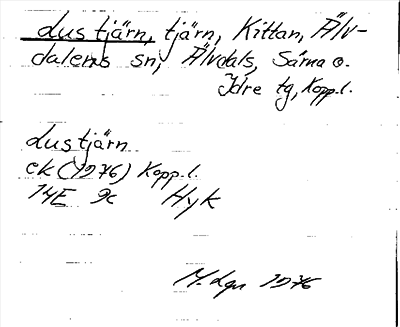 Lustjärn, tjärn, Kittan, Älv-
dalens sn, Älvdals, Särna o.
Idre tg, Kopp.l.
Lustjärn
ek (1976) Kopp.l.
14E 9c Hyk
M.Lgn 1976